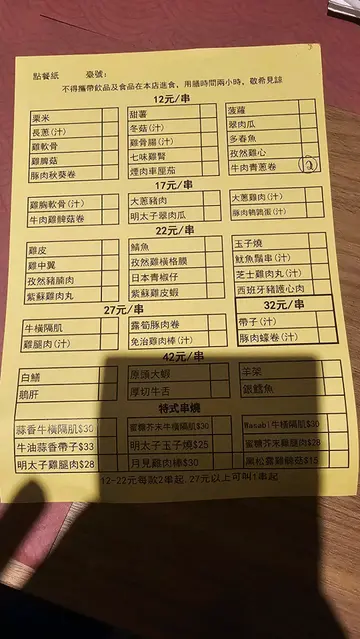 點餐紙 臺號:
不得攜帶飲品及食品在本店進食, 用膳時間兩小時, 敬希見諒
12元/串
粟米 甜薯 菠蘿
長蔥(汁) 冬菇(汁) 翠肉瓜
雞軟骨 雞骨腸(汁) 多春魚
雞髀菇 七味雞腎 孜然雞心
豚肉秋葵卷 煙肉車厘茄 牛肉青蔥卷 2
17元/串
雞胸軟骨(汁) 大蔥豬肉 大蔥雞肉(汁)
牛肉雞髀菇卷 明太子翠肉瓜 豚肉鵪鶉蛋(汁)
22元/串
雞皮 鯖魚 玉子燒
雞中翼 孜然雞橫格膜 魷魚鬚串(汁)
孜然豬腩肉 日本青椒仔 芝士雞肉丸(汁)
紫蘇雞肉丸 紫蘇雞皮蝦 西班牙豬護心肉
27元/串 32元/串
牛橫隔肌 露筍豚肉卷 帶子(汁)
雞腿肉(汁) 免治雞肉棒(汁) 豚肉蠔卷(汁)
42元/串
白鱔 原頭大蝦 羊架
鵝肝 厚切牛舌 銀鱈魚
特式串燒
蒜香牛橫隔肌$30 蜜糖芥末牛橫隔肌$30 Wasabi牛橫隔肌$30
牛油蒜香帶子$33 明太子玉子燒$25 蜜糖芥末雞腿肉$28
明太子雞腿肉$28 月見雞肉棒$30 黑松露雞髀菇$15
12-22元每款2串起.27元以上可叫1串起